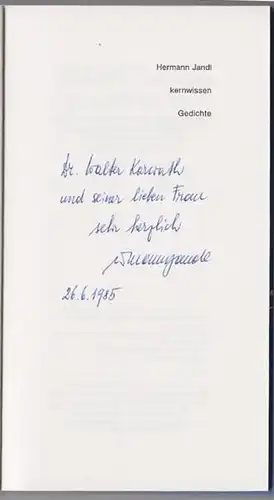 Hermann Jandl
kernwissen
Gedichte
Dr. Walter Korwath
und seiner lieben Frau
sehr herzlich
26.6.1985